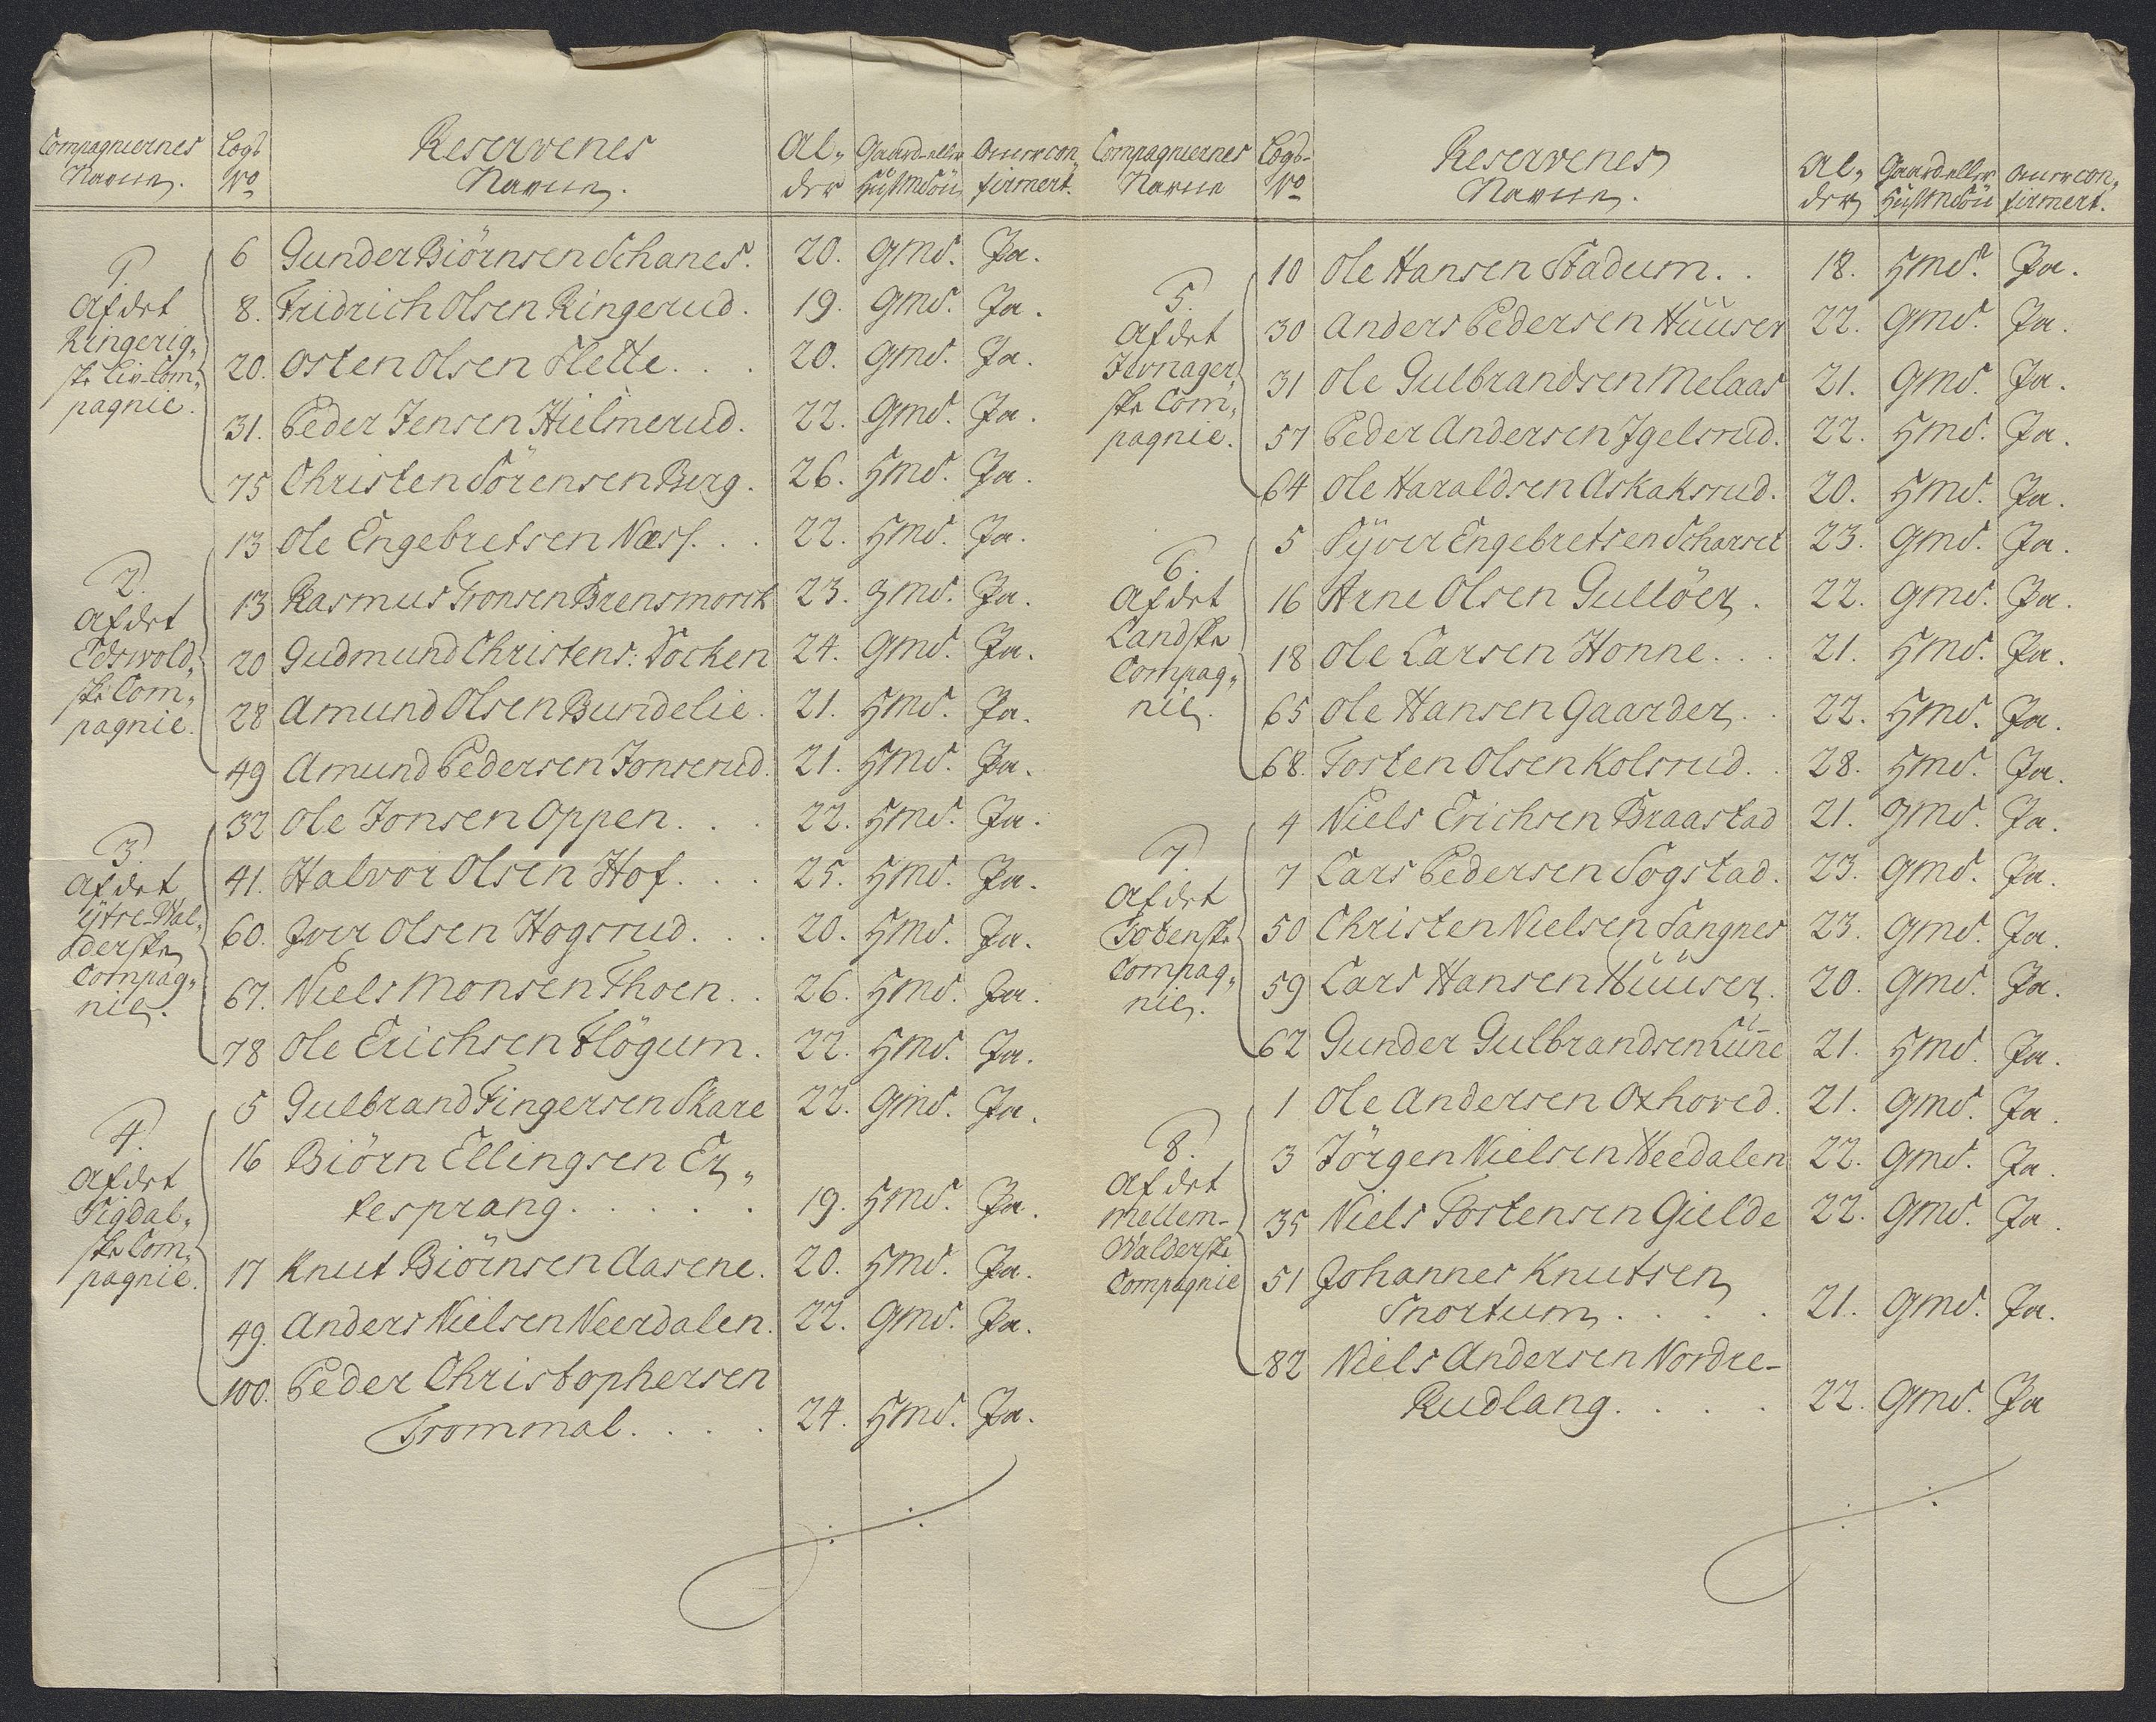 Compagniernes Navne. Legd No Reservenes Navne. Al„der Gaard- eller Huusmds Sön Om er con„firmert.
1.
Af det
Ringerig„
ske Liv-Com„
pagnie.
6 Gunder Biörnsen Schanes. 20. Gmds. Ja.
8. Fridrich Olsen Ringerud. 19. Gmds. Ja.
20. Osten Olsen Flette. . . 20. Gmds. Ja.
31. Peder Jensen Hielmerud. 22. Gmds. Ja.
75 Christen Sörensen Berg. 26. Hmds. Ja.
2.
Af det
Edswold„
ske Com„
pagnie.
13 Ole Engebretsen Næss. . . 22. Hmds. Ja.
13 Rasmus Tronsen Brensmorck 23. Gmds. Ja.
20 Gudmund Christens: Socken 24. Gmds. Ja.
28 Amund Olsen Bundelie. 21. Hmds. Ja.
49 Amund Pedersen Jonserud. 21. Hmds. Ja.
3.
Af det
ÿtre-Wal„
derske
Compag„
nie.
32 Ole Jonsen Oppen. . . 22. Hmds. Ja.
41. Halvor Olsen Hof. . . 25. Hmds. Ja.
60. Iver Olsen Hogsrud. . . 20. Hmds. Ja.
67. Niels Monsen Thoen. . 26. Hmds. Ja.
78 Ole Erichsen Flögum. 22. Hmds. Ja.
4.
Af det
Sigdal„
ske Com„
pagnie.
5 Gulbrand Fingersen Skare 22. Gmds. Ja.
16 Biörn Ellingsen Er„
tesprang. . . . . 19. Hmds. Ja.
17 Knut Biörnsen Aasene. 20. Hmds. Ja.
49. Anders Nielsen Neerdalen. 22. Gmds. Ja.
100. Peder Christophersen
Trommal. . . . 24. Hmds. Ja.
Compagniernes Navne Legd- No Reservenes Navne. Al„der Gaard- eller Huusmds Sön Om er con„firmert.
5.
Af det
Jevnager„
ske Com„
pagnie.
10 Ole Hansen Stadum. . 18. Hmds. Ja.
30 Anders Pedersen Huuser 22. Gmds. Ja.
31 Ole Gulbrandsen Melaas 21. Gmds. Ja.
57 Peder Andersen Igelsrud. 22. Hmds. Ja.
64 Ole Haraldsen Askaksrud. 20. Hmds. Ja.
6.
Af det
Landske
Compag„
nie.
5 Syver Engebretsen Scharset 23. Gmds. Ja.
16 Arne Olsen Gullöer. 22. Gmds. Ja.
18 Ole Larsen Honne. . . 21. Hmds. Ja.
65 Ole Hansen Gaarder. . 22. Hmds. Ja.
68. Tosten Olsen Kolsrud. . 28. Hmds. Ja.
7.
Af det
Totenske
Compag„
nie.
4 Niels Erichsen Braastad 21. Gmds. Ja.
7 Lars Pedersen Sogstad. 23. Gmds. Ja.
50 Christen Nielsen Sangnes 23. Gmds. Ja.
59 Lars Hansen Huuser. 20. Gmds. Ja.
62 Gunder Gulbrandsen Lunne 21. Hmds. Ja.
8.
Af det
Mellem-
Walderske
Compagnie
1 Ole Andersen Oxhoved. 21. Gmds. Ja.
3 Jörgen Nielsen Needalen 22. Gmds. Ja.
35 Niels Tostensen Gielde 22. Gmds. Ja.
51 Johannes Knutsen
Snortum. . . . 21. Gmds. Ja.
82 Niels Andersen Nordre-
Rudlang. . . . 22. Gmds. Ja